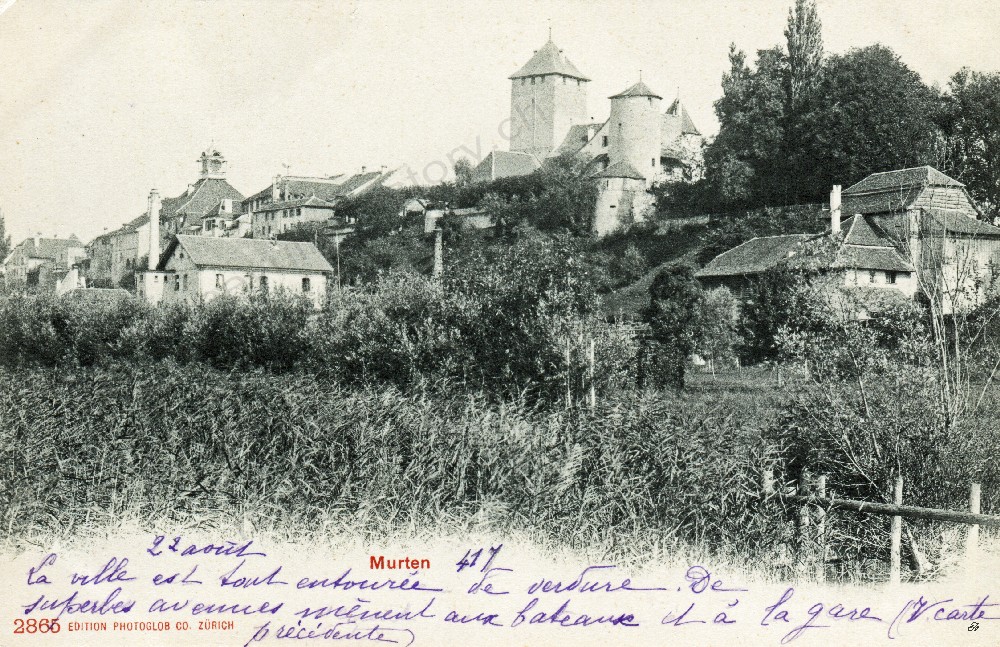 22 août Murten 417
La ville est tout entourée de verdure. De
superbes avenues mènent aux bateaux et à la gare (V. carte
2865 EDITION PHOTOGLOB CO. ZÜRICH
précédente)